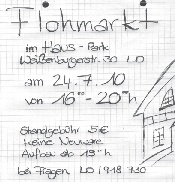 Flohmarkt
im Haus-Park
Weißenburgerstr. 30 LD
am 24.7.10
von 16⁰⁰-20⁰⁰h
Standgebühr 5€
keine Neuware
Aufbau ab 15⁰⁰h
bei Fragen LD 918 730